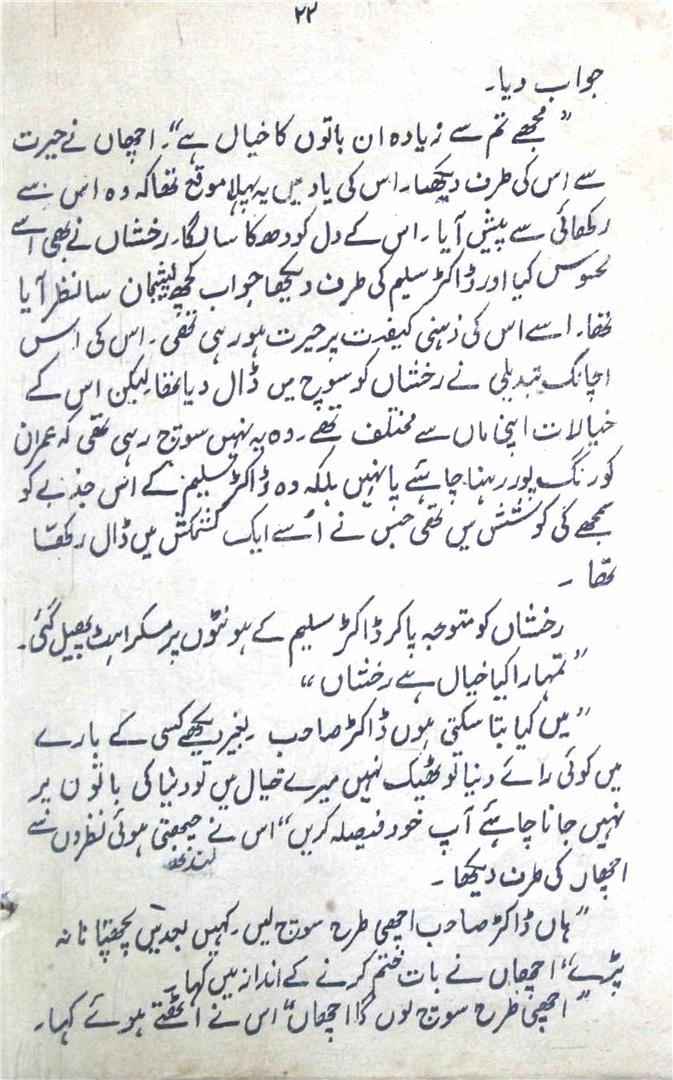 ۲۲
جواب دیا۔
”مجھے تم سے زیادہ ان باتوں کا خیال ہے“۔ اچھاں نے حیرت
سے اس کی طرف دیکھا۔ اس کی یاد میں یہ پہلا موقع تھا کہ وہ اس سے
رکھائی سے پیش آیا۔ اس کے دل کو دھکا سا لگا۔ رخشاں نے بھی اسے
محسوس کیا اور ڈاکٹر سلیم کی طرف دیکھا جو اب کچھ پشیمان سا نظر آیا
تھا۔ اسے اس کی ذہنی کیفیت پر حیرت ہو رہی تھی۔ اس کی اس
اچانک تبدیلی نے رخشاں کو سوچ میں ڈال دیا تھا لیکن اس کے
خیالات اپنی ماں سے مختلف تھے۔ وہ یہ نہیں سوچ رہی تھی کہ عمران
کو رنگ پور رہنا چاہئے یا نہیں بلکہ وہ ڈاکٹر سلیم کے اس جذبے کو
سمجھے کی کوشش میں تھی جس نے اُسے ایک کشمکش میں ڈال رکھا
تھا۔
رخشاں کو متوجہ پا کر ڈاکٹر سلیم کے ہونٹوں پر مسکراہٹ پھیل گئی۔
”تمہارا کیا خیال ہے رخشاں“
”میں کیا بتا سکتی ہوں ڈاکٹر صاحب بغیر دیکھے کسی کے بارے
میں کوئی رائے دینا تو ٹھیک نہیں میرے خیال میں تو دنیا کی باتوں پر
نہیں جانا چاہئے آپ خود فیصلہ کریں“ اس نے چبھتی ہوئی نظروں سے
اچھاں کی طرف دیکھا۔
”ہاں ڈاکٹر صاحب اچھی طرح سوچ لیں۔ کہیں بعد میں پچھتانا نہ
پڑے“ اچھاں نے بات ختم کرنے کے انداز میں کہا۔
”اچھی طرح سوچ لوں گا اچھاں“ اس نے اٹھتے ہوئے کہا۔